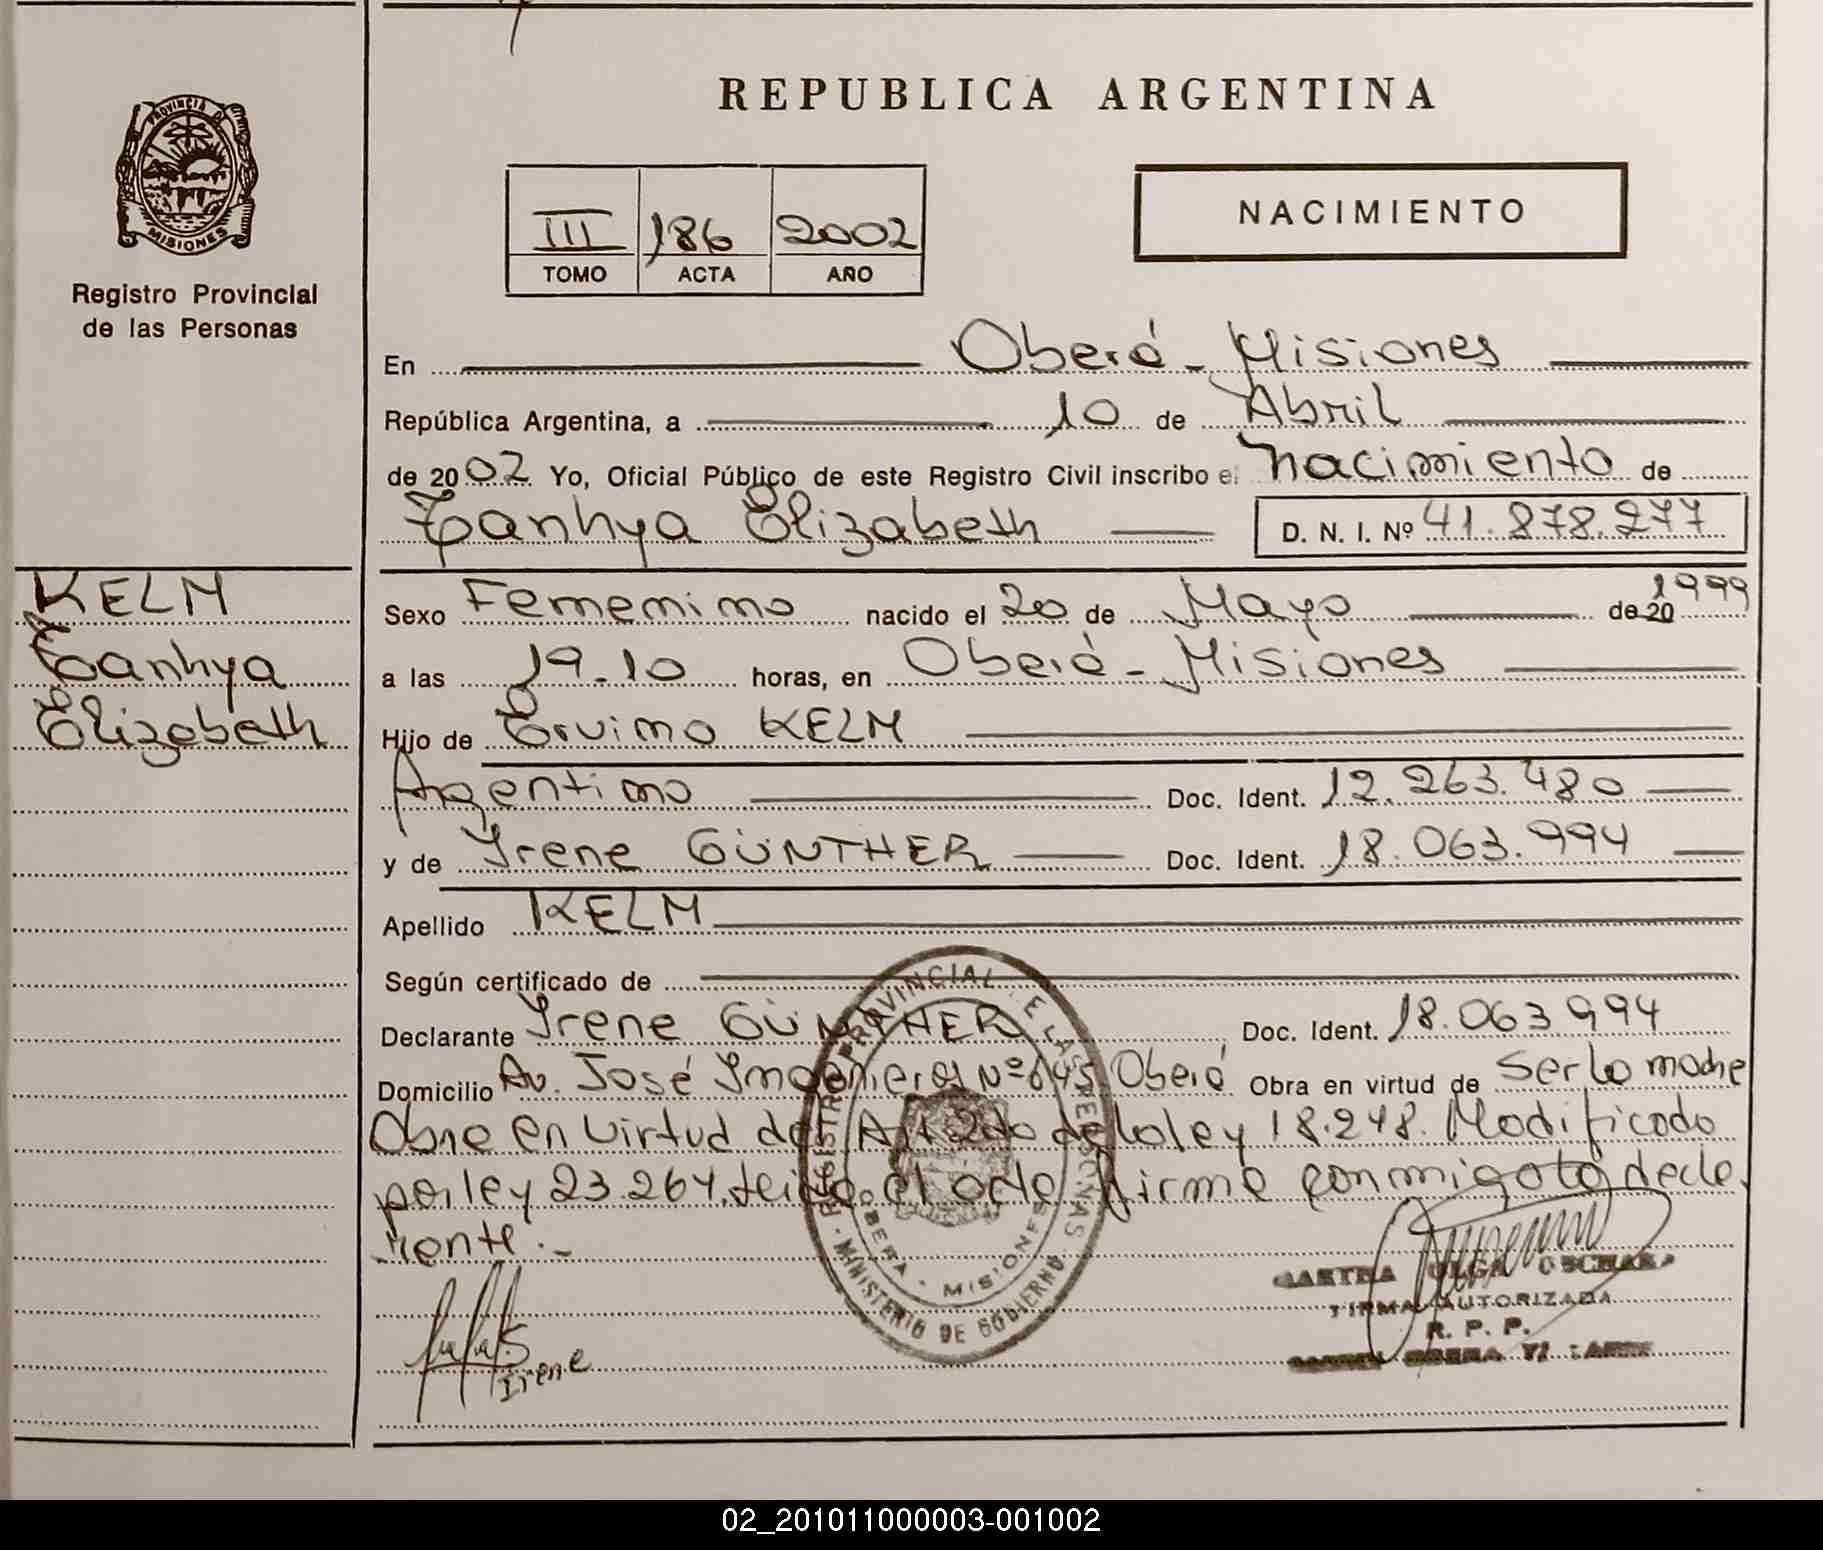 REPUBLICA ARGENTINA
PROVINCIA DE
MISIONES
Registro Provincial
de las Personas
III 186 2002
TOMO ACTA AÑO
NACIMIENTO
En Oberá - Misiones
República Argentina, a 10 de Abril
de 2002 Yo, Oficial Público de este Registro Civil inscribo el nacimiento de
Tanhya Elizabeth D. N. I. Nº 41.878.277
KELM
Tanhya
Elizabeth
Sexo Femenino nacido el 20 de Mayo de 20 1999
a las 19.10 horas, en Oberá - Misiones
Hijo de Ervino KELM
Argentino Doc. Ident. 12.263.480
y de Irene GÜNTHER Doc. Ident. 18.063.994
Apellido KELM
Según certificado de
Declarante Irene GÜNTHER Doc. Ident. 18.063994
Domicilio Av. José Ingenieros Nº 645 Oberá Obra en virtud de ser la madre
Obra en virtud del Art 2do de la ley 18.248. Modificado
por ley 23.264. leida el acta firma conmigo la decla
rante.-
REGISTRO PROVINCIAL DE LAS PERSONAS
OBERA - MISIONES
MINISTERIO DE GOBIERNO
Irene
OLGA
FIRMA AUTORIZADA
R. P. P.
02_201011000003-001002